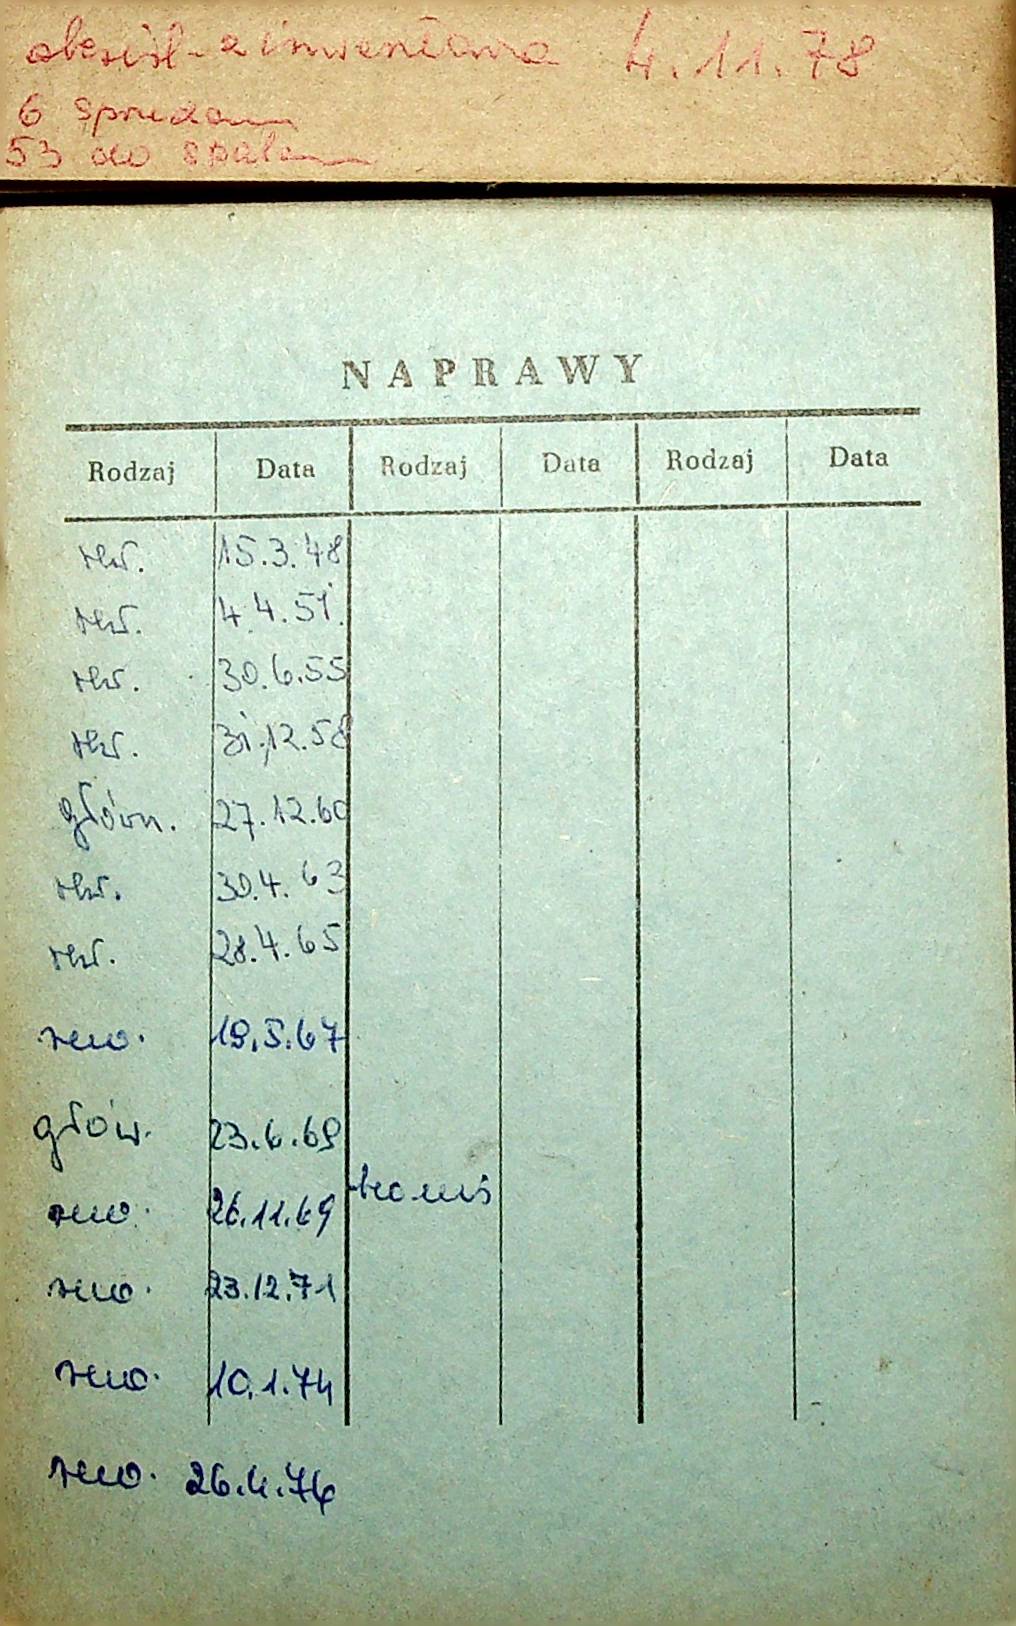 skreśl. z inwentarza 4.11.78
6 sprzedan
53 do spalen
NAPRAWY
Rodzaj Data Rodzaj Data Rodzaj Data
rew. 15.3.48
rew. 4.4.51.
rew. 30.6.55
rew. 31.12.58
główn. 27.12.60
rew. 30.4.63
rew. 28.4.65
rew. 19.5.67
głów. 23.6.69
rew. 26.11.69
rew. 23.12.71
rew. 10.1.74
rew. 26.4.76